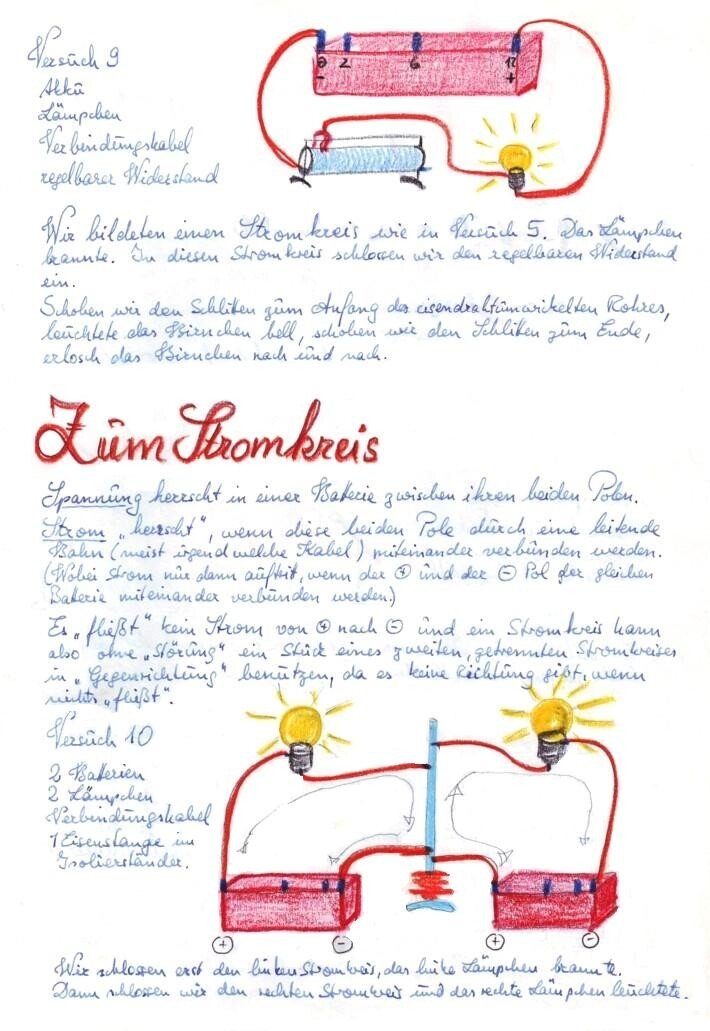 Versuch 9
Akku
Lämpchen
Verbindungskabel
regelbarer Widerstand
0 2 6 12
- +
Wir bildeten einen Stromkreis wie in Versuch 5. Das Lämpchen
brannte. In diesen Stromkreis schlossen wir den regelbaren Widerstand
ein.
Schoben wir den Schlitten zum Anfang des eisendrahtumwickelten Rohres,
leuchtete das Birnchen hell, schoben wir den Schlitten zum Ende,
erlosch das Birnchen nach und nach.
Zum Stromkreis
Spannung herrscht in einer Batterie zwischen ihren beiden Polen.
Strom „herrscht", wenn diese beiden Pole durch eine leitende
Bahn (meist irgendwelche Kabel) miteinander verbunden werden.
(Wobei Strom nur dann auftrit, wenn der ⊕ und der ⊖ Pol der gleichen
Baterie miteinander verbunden werden.)
Es „fließt" kein Strom von ⊕ nach ⊖ und ein Stromkreis kann
also ohne „Störung" ein Stück eines zweiten, getrennten Stromkreises
in „Gegenrichtung" benützen, da es keine Richtung gibt, wenn
nichts „fließt".
Versuch 10
2 Batterien
2 Lämpchen
Verbindungskabel
1 Eisenstange im
Isolierständer.
+ - + -
Wir schlossen erst den linken Stromkreis, das linke Lämpchen brannte.
Dann schlossen wir den rechten Stromkreis und das rechte Lämpchen leuchtete.